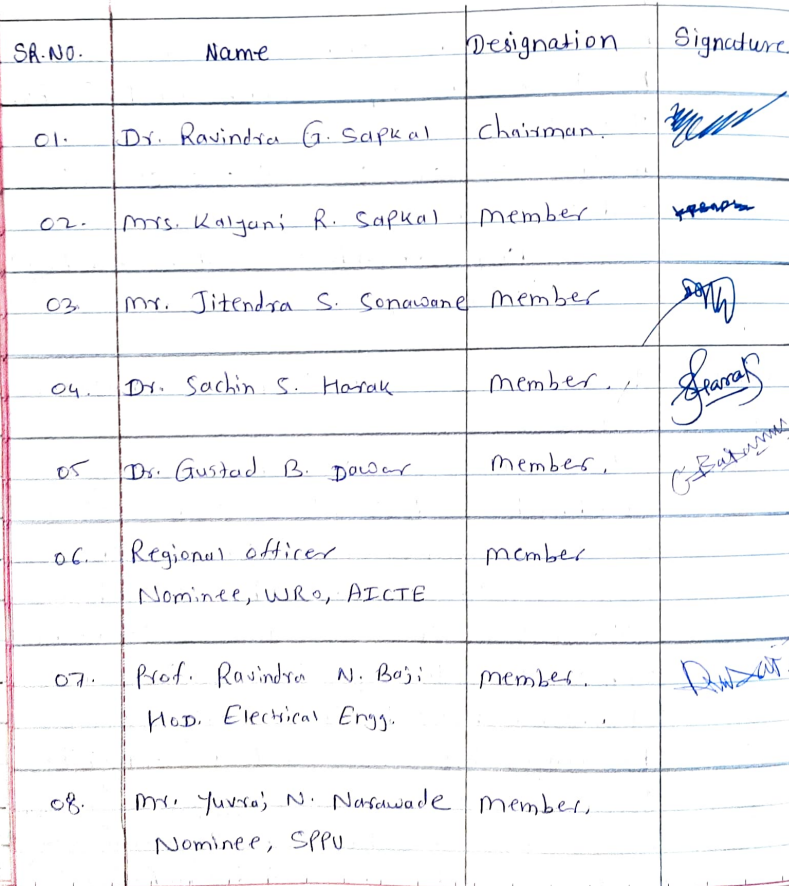 SR.NO. Name Designation Signature
01. Dr. Ravindra G. Sapkal Chairman.
02. Mrs. Kalyani R. Sapkal Member
03. Mr. Jitendra S. Sonawane Member
04. Dr. Sachin S. Harak Member.
05 Dr. Gustad B. Dawar Member.
06. Regional Officer Member
Nominee, WRO, AICTE
07. Prof. Ravindra N. Baji Member.
HoD. Electrical Engg.
08. Mr. Yuvraj N. Narawade Member.
Nominee, SPPU